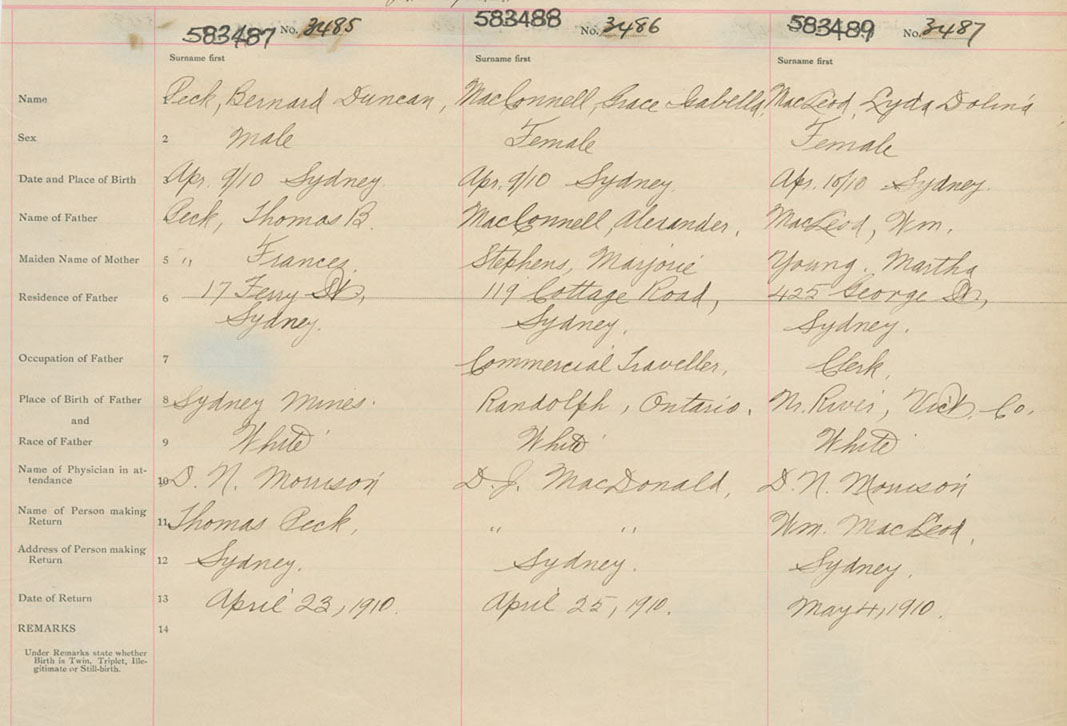 583487 No. 3485 583488 No. 3486 583489 No. 3487
Surname first Surname first Surname first
Name Peck, Bernard Duncan, MacConnell, Grace Isabella, MacLeod, Lyda Dolina
Sex 2 Male Female Female
Date and Place of Birth 3 Apr. 9/10 Sydney. Apr. 9/10 Sydney. Apr. 10/10 Sydney.
Name of Father Peck, Thomas B. MacConnell, Alexander, MacLeod, Wm.
Maiden Name of Mother 5 " Frances. Stephens, Marjorie Young, Martha
Residence of Father 6 17 Ferry St, 119 Cottage Road, 425 George St,
Sydney. Sydney. Sydney.
Occupation of Father 7 Commercial Traveller, Clerk,
Place of Birth of Father 8 Sydney Mines. Randolph, Ontario. River, Vict. Co.
and
Race of Father 9 White White White
Name of Physician in at-
tendance 10 D. N. Morrison D. J. MacDonald, D. N. Morrison
Name of Person making
Return 11 Thomas Peck, " " Wm. MacLeod,
Address of Person making
Return 12 Sydney. Sydney. Sydney.
Date of Return 13 April 23, 1910. April 25, 1910. May 4, 1910.
REMARKS 14
Under Remarks state whether
Birth is Twin, Triplet, Ille-
gitimate or Still-birth.